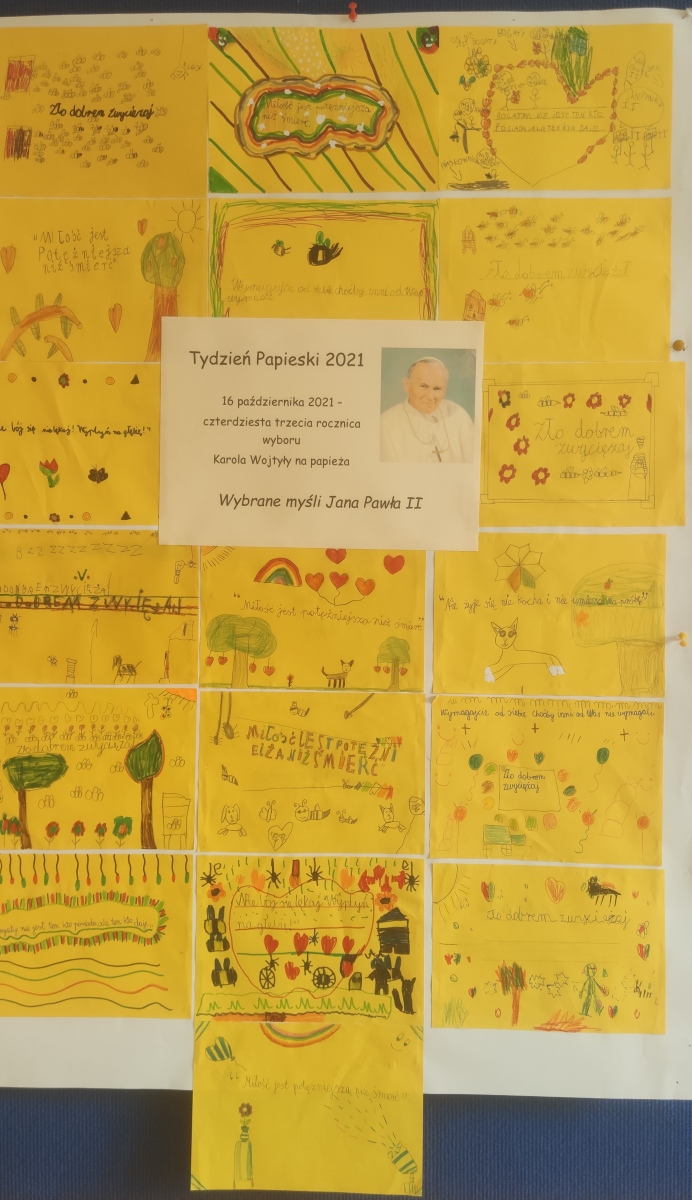 Zło dobrem zwyciężaj
Miłość jest potężniejsza
niż śmierć
BOGATY NIE JEST TEN KTO
POSIADA ALE TEN KTO DAJE
"Miłość jest
Potężniejsza
niż śmierć"
Zło dobrem zwyciężaj
Tydzień Papieski 2021
16 października 2021 –
czterdziesta trzecia rocznica
wyboru
Karola Wojtyły na papieża
Wybrane myśli Jana Pawła II
bój się, nie lękaj! Wypłyń na głębię!"
Zło dobrem
zwyciężaj
DOBREM ZWYCIĘŻAJ
"Miłość jest potężniejsza niż śmierć"
"Nie żyje się, nie kocha i nie umiera na próbę"
Zło dobrem zwyciężaj
MIŁOŚĆ JEST POTĘŻNI
EJZA NIŻ ŚMIERĆ
Wymagajcie od siebie choćby inni od Was nie wymagali
Zło dobrem
zwyciężaj
nie jest ten kto posiada ale ten kto daje
Nie bój się, nie lękaj! Wypłyń
na głębię!
Zło dobrem zwyciężaj
"Miłość jest potężniejsza niż śmierć"